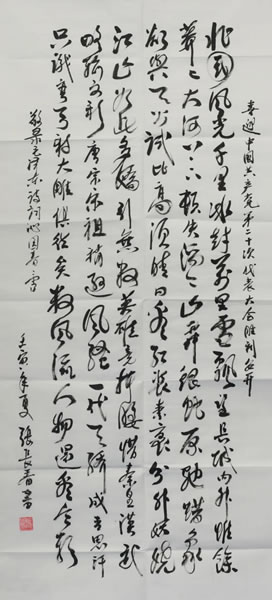 喜迎中國共产党第二十次代表大会胜利召开
北國風光千里冰封萬里雪飘望长城内外惟餘
莽々大河上下顿失滔々山舞银蛇原驰蜡象
欲與天公试比高须晴日看红装素裹分外妖娆
江山如此多娇引無数英雄竞折腰惜秦皇漢武
略输文彩唐宗宋祖稍逊風骚一代天骄成吉思汗
只識弯弓射大雕俱往矣数風流人物还看今朝
敬录毛泽东诗词沁园春雪
壬寅年夏張長青書